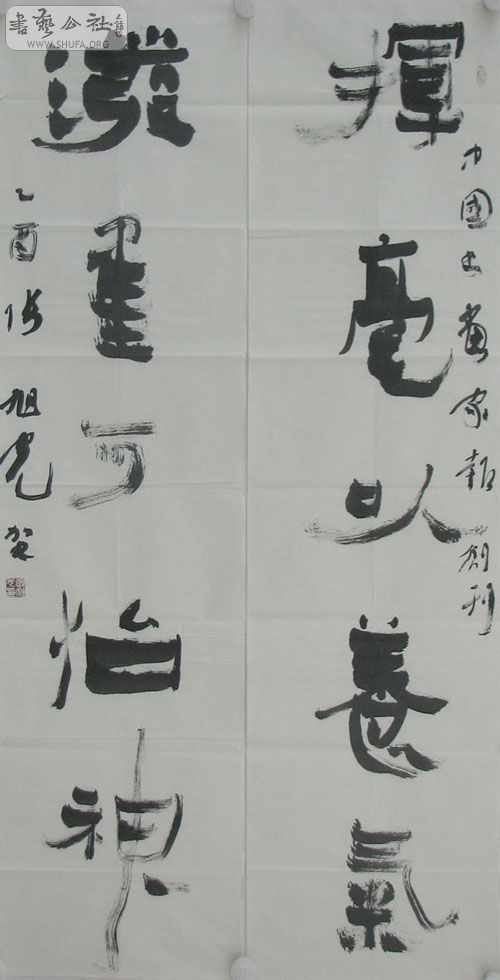 揮毫以養氣
中國书畫家報創刊
潑墨可怡神
乙酉 張旭光 賀
書藝公社
WWW.SHUFA.ORG